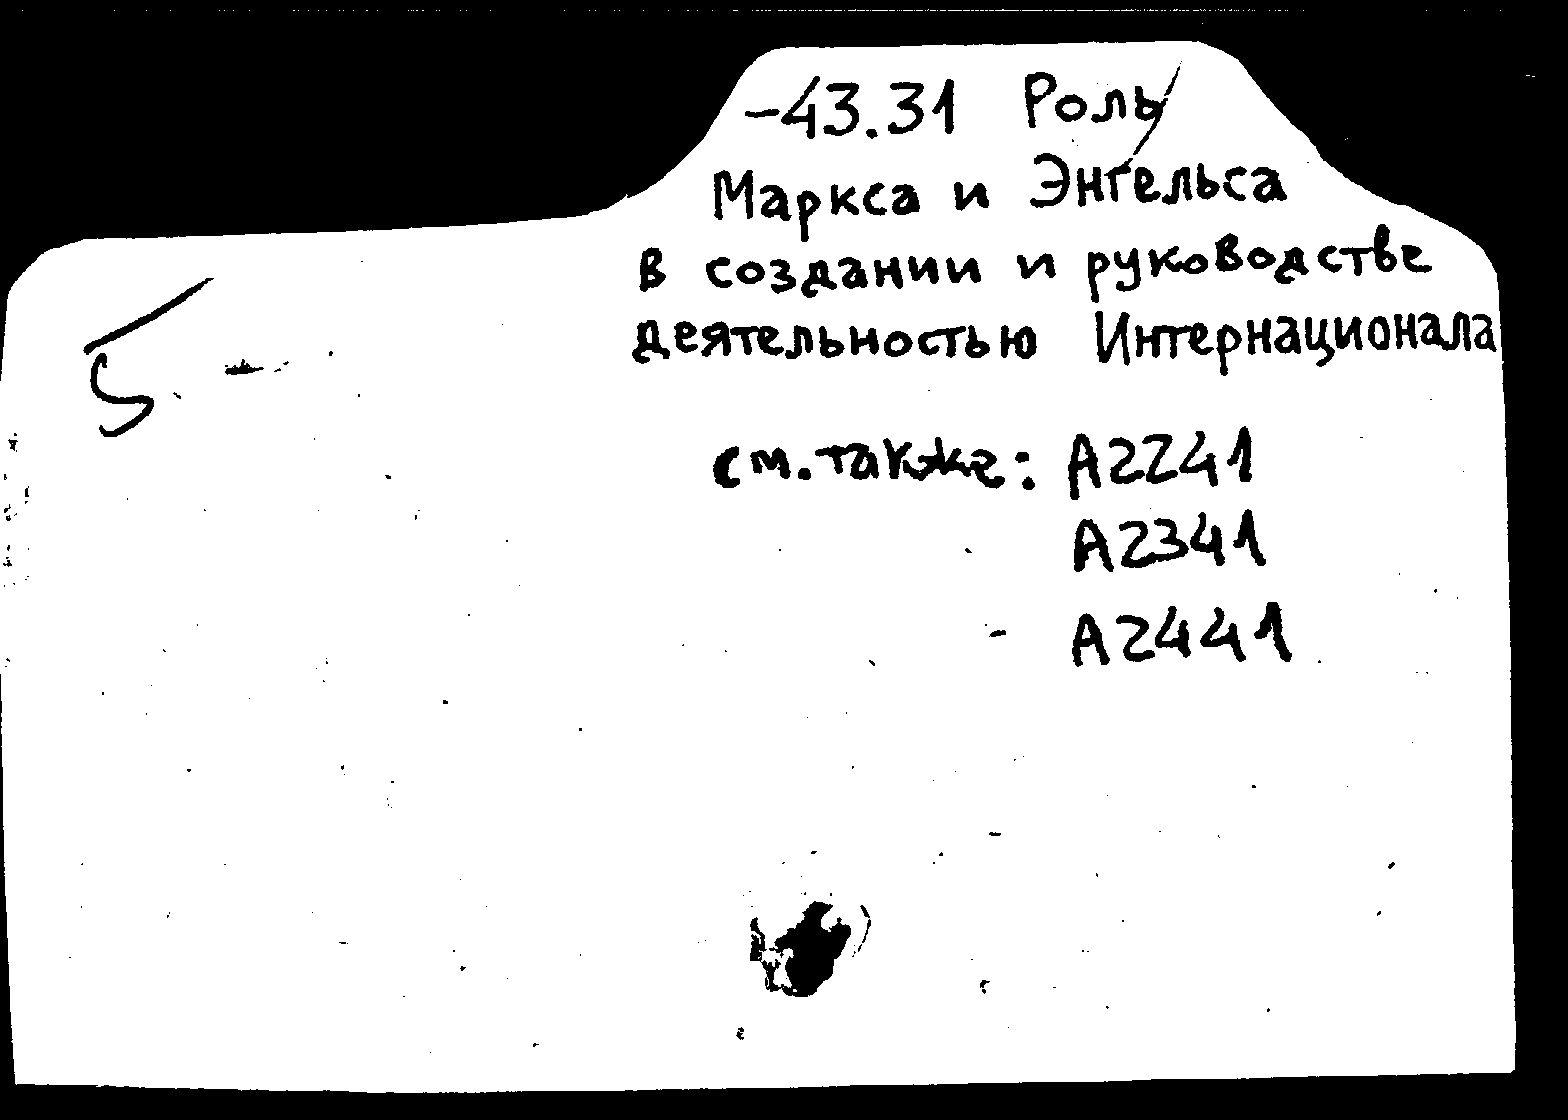 -43.31 Роль
Маркса и Энгельса
в создании и руководстве
деятельностью Интернационала
5
см. также: А2241
А2341
А2441